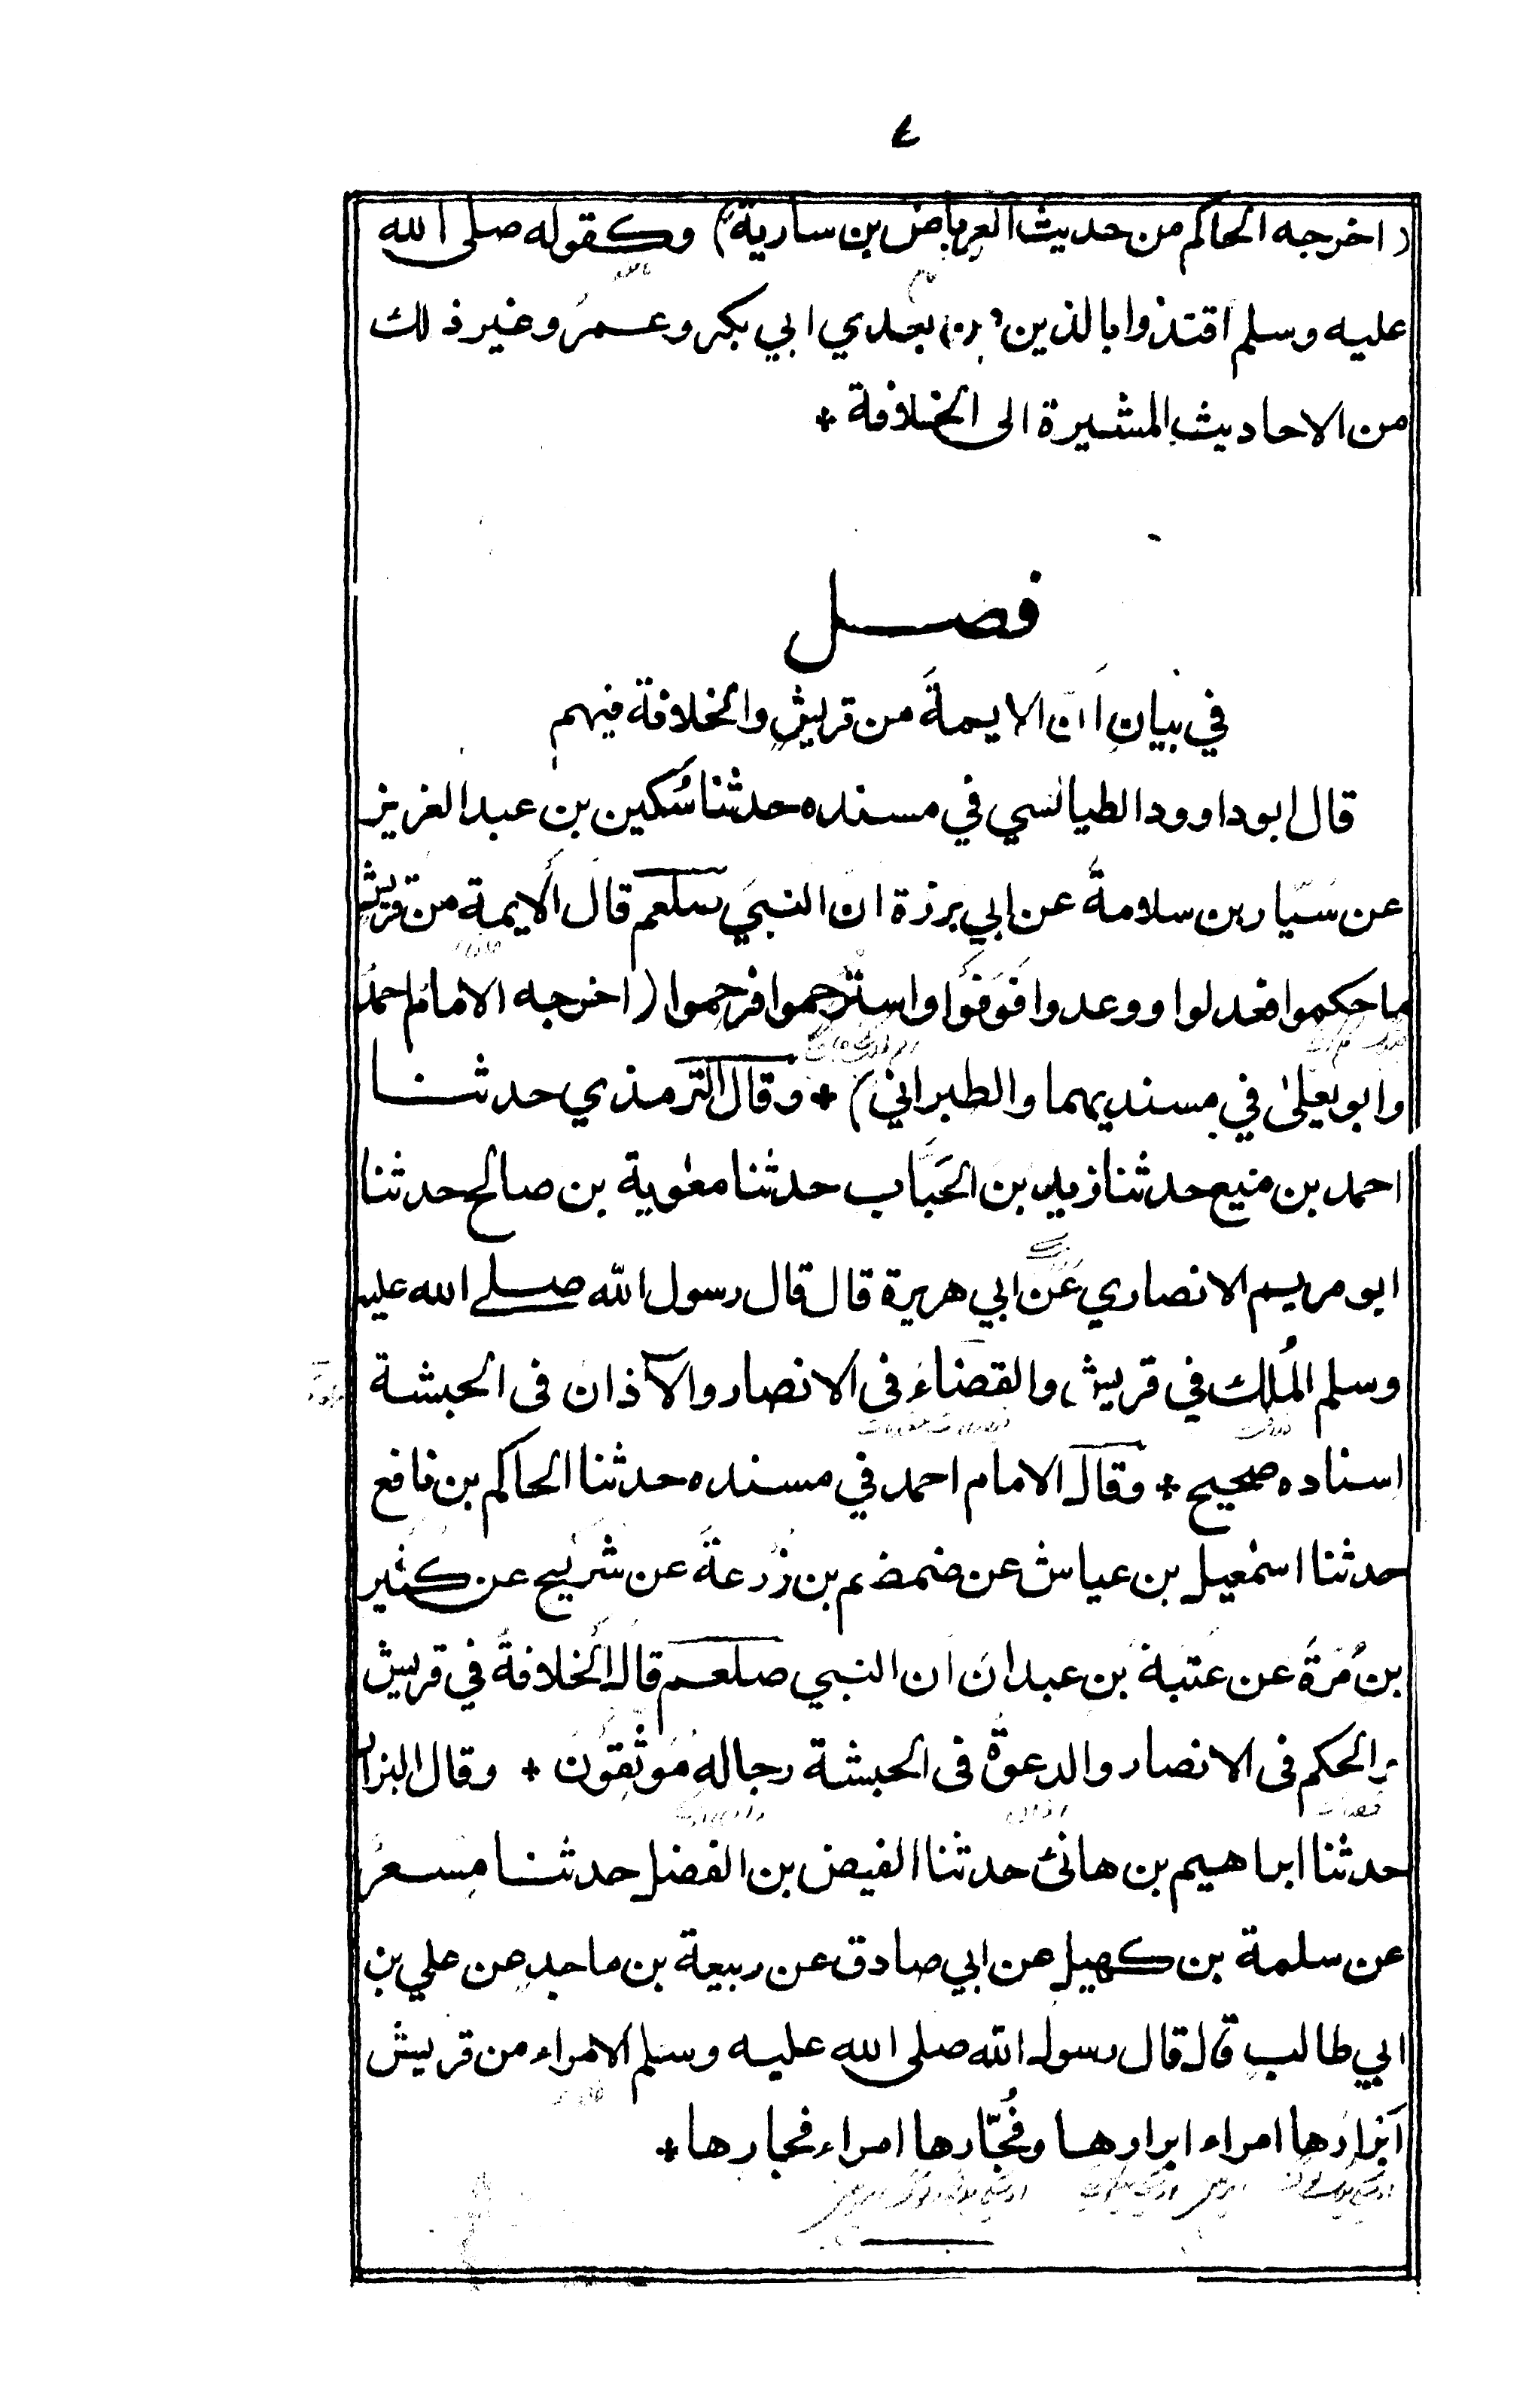 ٤
(اخرجه الحاكم من حديث العرباض بن سارية) وكقوله صلى الله
عليه وسلم اقتدوا بالذين من بعدي ابي بكر وعمر وغير ذلك
من الاحاديث المشيرة الى الخلافة *
فصل
في بيان ان الايمة من قريش والخلافة فيهم
قال ابو داوود الطيالسي في مسنده حدثنا سُكين بن عبد العزيز
عن سَيّار بن سلامة عن ابي برزة ان النبي صلعم قال الايمة من قريش
ما حكموا فعدلوا ووعدوا فَوَفَوا واسترحموا فرحموا (اخرجه الامام احمد
وابو يعلىٰ في مسنديهما والطبراني) * وقال الترمذي حدثنا
احمد بن منيع حدثنا زيد بن الحَبَاب حدثنا معٰوية بن صالح حدثنا
ابو مريم الانصاري عَن ابي هريرة قال قال رسول الله صلے الله عليه
وسلم المُلك في قريش والقضاء فى الانصار والآذان فى الحبشة
اسناده صحيح * وقال الامام احمد في مسنده حدثنا الحاكم بن نافع
حدثنا اسمٰعيل بن عياش عن ضمضم بن زُرعة عن شريح عن كثير
بن مُرَة عن عتبة بن عبدان ان النبي صلعم قال الخلافة في قريش
والحكم فى الانصار والدعوة فى الحبشة رجاله مَوثقون * وقال البزار
حدثنا ابراهيم بن هانئ حدثنا الفيض بن الفضل حدثنا مِسعرُ
عن سلمة بن كهيل عن ابي صادق عن ربيعة بن ماجدٍ عن علي بن
ابي طالب قال قال رسول الله صلى الله عليه وسلم الامراء من قريش
اَبرارها امراء ابرارها وفُجّارها امراء فجارها *